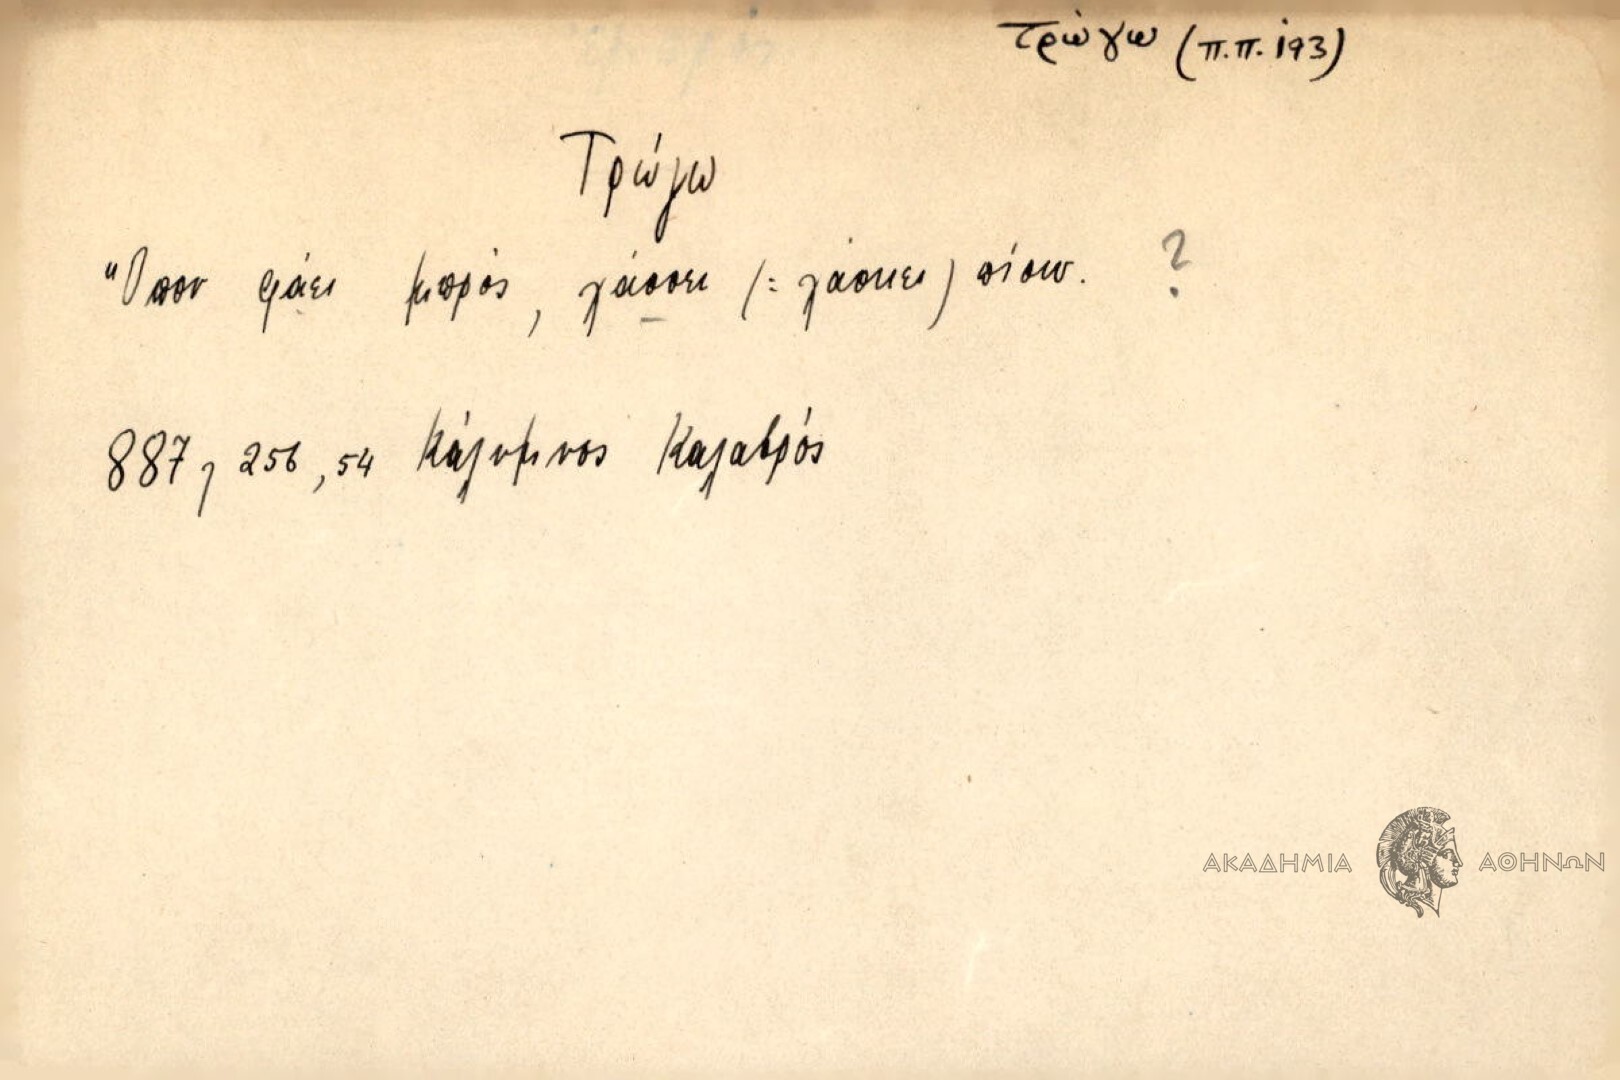 τρώγω (π.π. 193)
Τρώγω
Ὅπου φάει μπρός, λάσσει (= λάσκει) πίσω. ?
887, 256, 54 Κάλυμνος Καλαβρός
ΑΚΑΔΗΜΙΑ ΑΘΗΝΩΝ